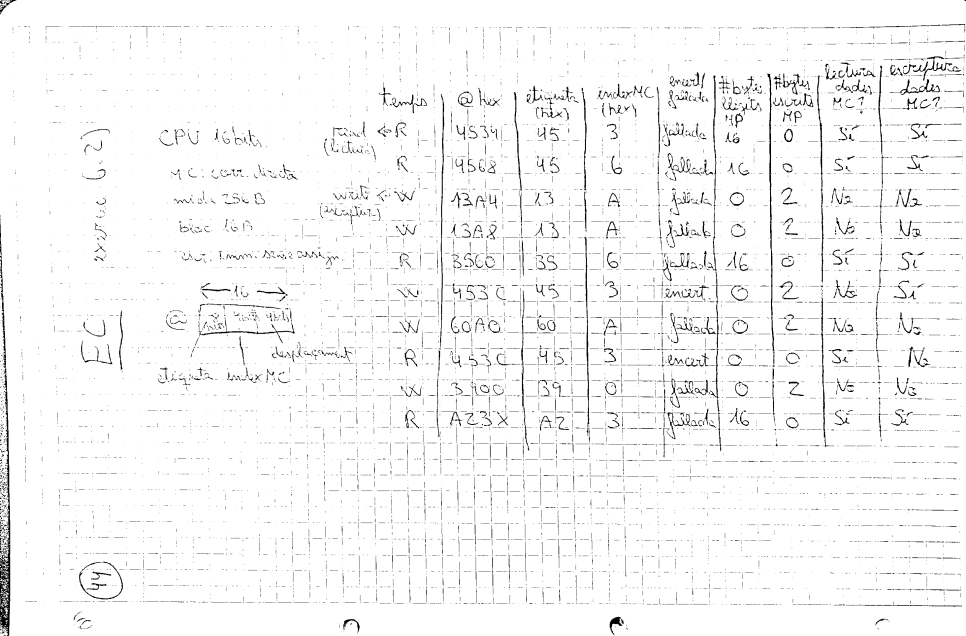 EC
exercici 6.2)
CPU 16 bits
MC: corr. directa
mida 256 B
bloc 16 B
escr. imm. sense assign.
16
@ 8 bits 4 bits 4 bits
desplaçament
etiqueta index MC
read ← R
(lectura)
write ← W
(escriptura)
temps @ hex etiqueta (hex) index MC (hex) encert/fallada #bytes llegits MP #bytes escrits MP lectura dades MC? escriptura dades MC?
R 4534 45 3 fallada 16 0 Sí Sí
R 4568 45 6 fallada 16 0 Sí Sí
W 13A4 13 A fallada 0 2 No No
W 13A8 13 A fallada 0 2 No No
R 3560 35 6 fallada 16 0 Sí Sí
W 453C 45 3 encert 0 2 No Sí
W 60A0 60 A fallada 0 2 No No
R 453C 45 3 encert 0 0 Sí No
W 3900 39 0 fallada 0 2 No No
R A23X A2 3 fallada 16 0 Sí Sí
44